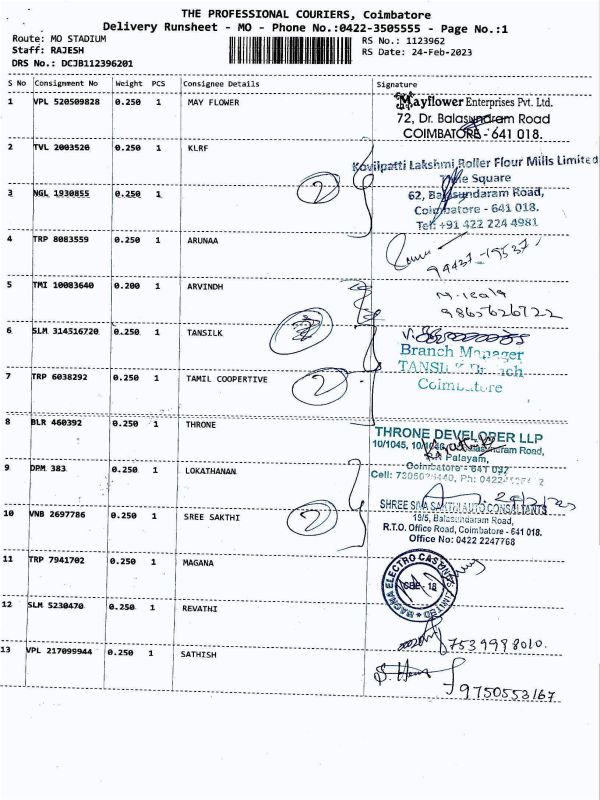 THE PROFESSIONAL COURIERS, Coimbatore
Delivery Runsheet - MO - Phone No.:0422-3505555 - Page No.:1
Route: MO STADIUM
Staff: RAJESH
DRS No.: DCJB112396201
RS No.: 1123962
RS Date: 24-Feb-2023
S No Consignment No Weight PCS Consignee Details Signature
1 VPL 520509828 0.250 1 MAY FLOWER
Mayflower Enterprises Pvt. Ltd.
72, Dr. Balasundram Road
COIMBATORE - 641 018.
2 TVL 2003520 0.250 1 KLRF
Kovilpatti Lakshmi Roller Flour Mills Limited
Square
3 NGL 1930855 0.250 1
2
62, Balasundaram Road,
Coimbatore - 641 018.
Tel: +91 422 224 4981
4 TRP 8083559 0.250 1 ARUNAA
94437-19537
5 TMI 10083640 0.200 1 ARVINDH
9865626722
6 SLM 314516720 0.250 1 TANSILK
Branch Manager
TANSILK Branch
Coimbatore
7 TRP 6038292 0.250 1 TAMIL COOPERTIVE
2
8 BLR 460392 0.250 1 THRONE
THRONE DEVELOPER LLP
10/1045, Balasundram Road,
Palayam,
Coimbatore - 641 037
9 DPM 383 0.250 1 LOKATHANAN
10 VNB 2697786 0.250 1 SREE SAKTHI
2
SHREE SIVA SAKTHI AUTO CONSULTANTS
19/5, Balasundaram Road,
R.T.O. Office Road, Coimbatore - 641 018.
Office No: 0422 2247768
11 TRP 7941702 0.250 1 MAGANA
MAGNA ELECTRO CASTINGS LIMITED
CBE - 18
12 SLM 5230470 0.250 1 REVATHI
7539998010.
13 VPL 217099944 0.250 1 SATHISH
9750553167